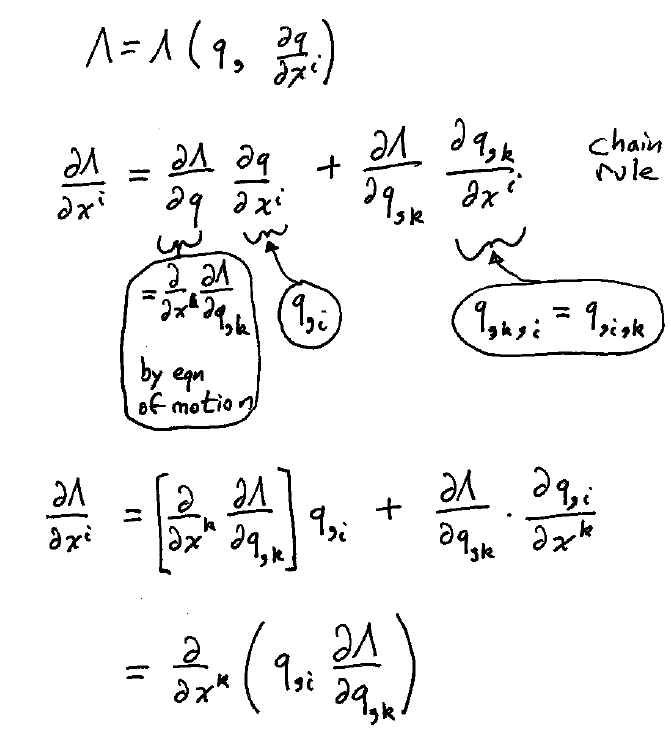 Λ = Λ ( q, ∂q/∂xⁱ )
∂Λ/∂xⁱ = ∂Λ/∂q ∂q/∂xⁱ + ∂Λ/∂q,k ∂q,k/∂xⁱ chain rule
= ∂/∂xᵏ ∂Λ/∂q,k
by eqn
of motion
q,i
q,k,i = q,i,k
∂Λ/∂xⁱ = [ ∂/∂xᵏ ∂Λ/∂q,k ] q,i + ∂Λ/∂q,k · ∂q,i/∂xᵏ
= ∂/∂xᵏ ( q,i ∂Λ/∂q,k )